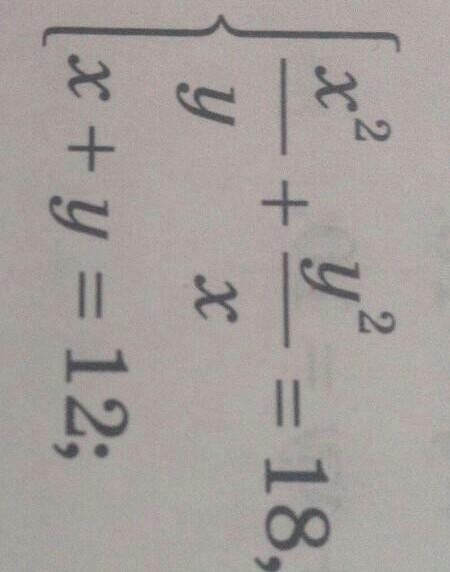 x²/y + y²/x = 18,
x + y = 12;